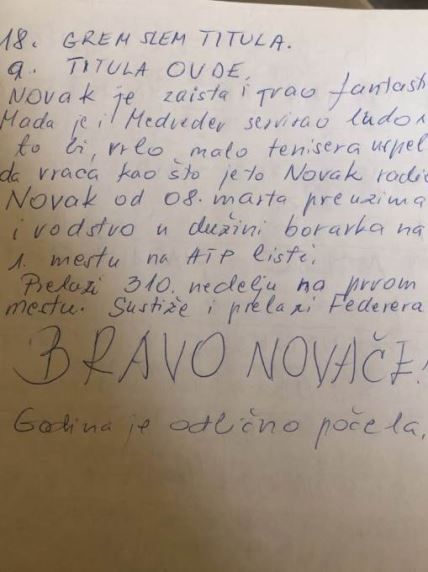 18. GREM SLEM TITULA.
9. TITULA OVDE.
NOVAK je zaista igrao fantasti
Mada je i Medvedev servirao ludo
to bi, vrlo malo tenisera uspel
da vraća kao što je to Novak radi
Novak od 08. marta preuzima
i vodstvo u dužini boravka na
1. mestu na ATP listi.
Prelazi 310. nedelju na prvom
mestu. Sustiže i prelazi Federera
BRAVO NOVAČE!
Godina je odlično počela.